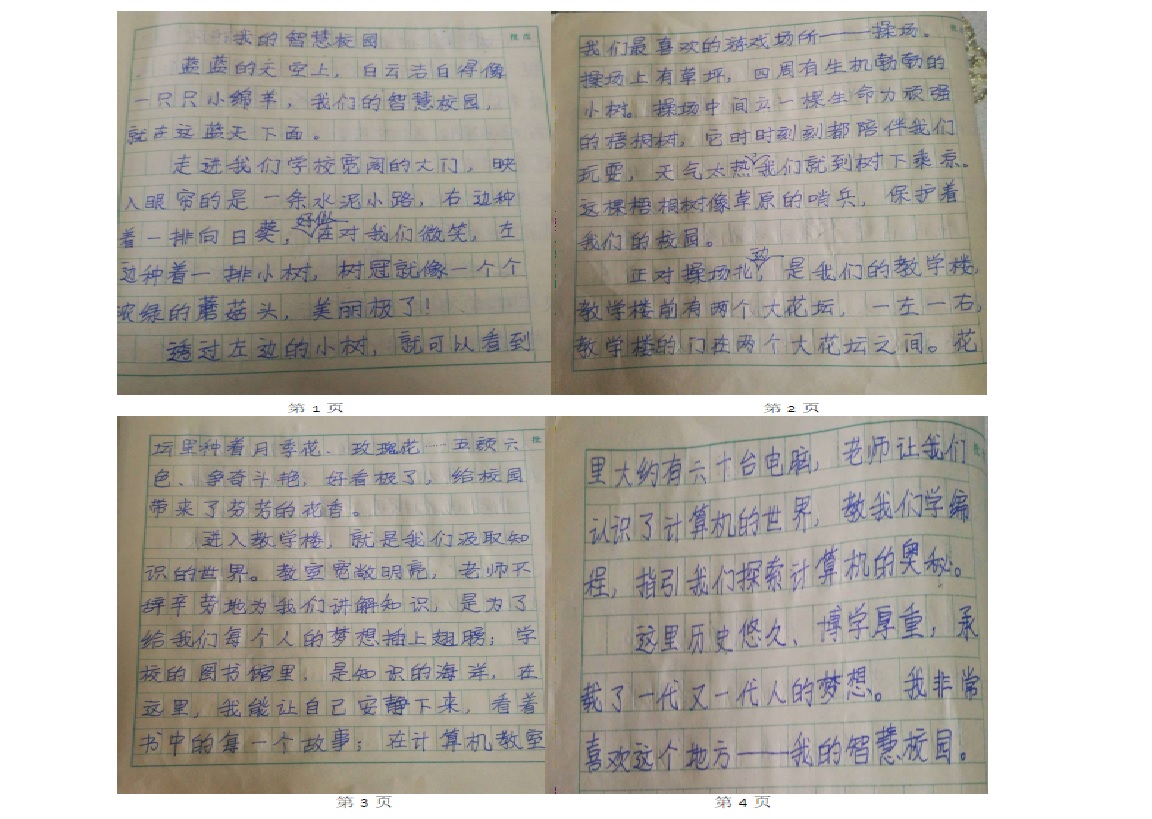 我的智慧校园
蓝蓝的天空上，白云洁白得像
一只只小绵羊，我们的智慧校园，
就在这蓝天下面。
走进我们学校宽阔的大门，映
入眼帘的是一条水泥小路，右边种
着一排向日葵，好似在对我们微笑，左
边种着一排小树，树冠就像一个个
浓绿的蘑菇头，美丽极了！
透过左边的小树，就可以看到
第 1 页
我们最喜欢的游戏场所——操场。
操场上有草坪，四周有生机勃勃的
小树。操场中间立一棵生命力顽强
的梧桐树，它时时刻刻都陪伴我们
玩耍，天气太热，我们就到树下乘凉。
这棵梧桐树像草原的哨兵，保护着
我们的校园。
正对操场北边，是我们的教学楼，
教学楼前有两个大花坛，一左一右，
教学楼的门在两个大花坛之间。花
第 2 页
坛里种着月季花、玫瑰花……五颜六
色、争奇斗艳，好看极了，给校园
带来了芬芳的花香。
进入教学楼，就是我们汲取知
识的世界。教室宽敞明亮，老师不
辞辛劳地为我们讲解知识，是为了
给我们每个人的梦想插上翅膀；学
校的图书馆里，是知识的海洋，在
这里，我能让自己安静下来，看着
书中的每一个故事；在计算机教室
第 3 页
里大约有六十台电脑，老师让我们
认识了计算机的世界，教我们学编
程，指引我们探索计算机的奥秘。
这里历史悠久、博学厚重，承
载了一代又一代人的梦想。我非常
喜欢这个地方——我的智慧校园。
第 4 页